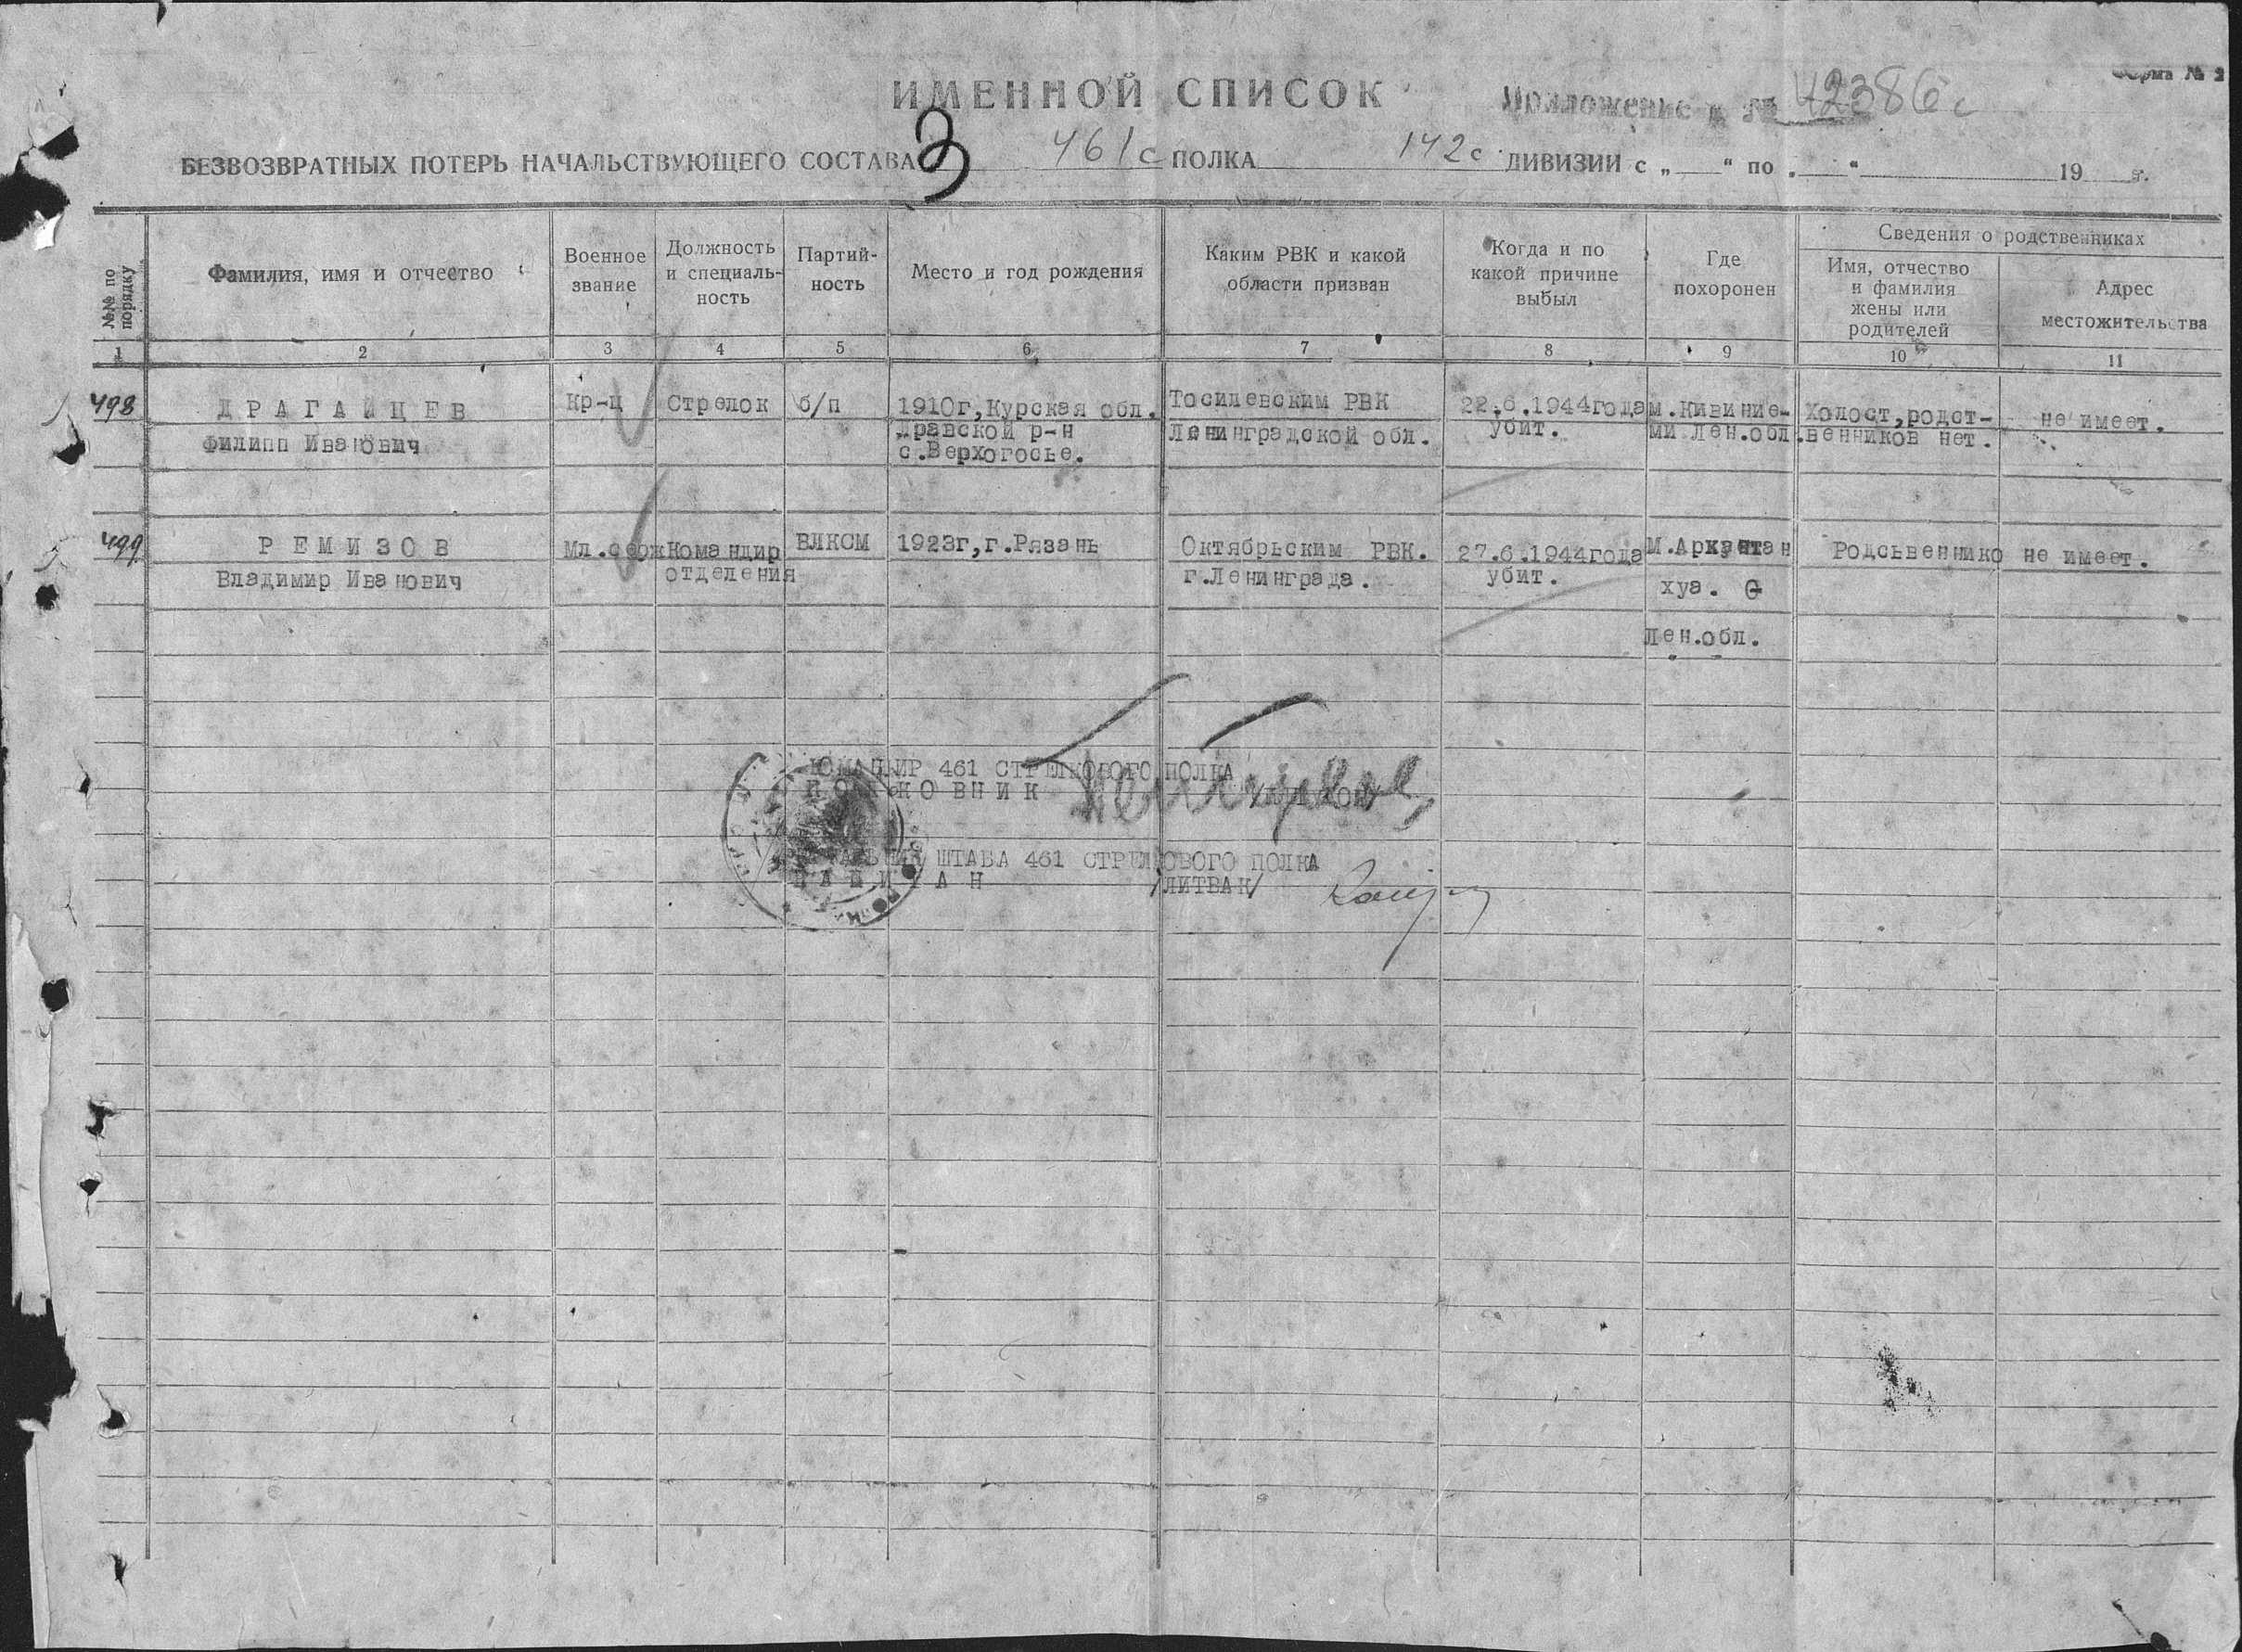 Форма № 2
ИМЕННОЙ СПИСОК
Приложение к № 42386с
БЕЗВОЗВРАТНЫХ ПОТЕРЬ НАЧАЛЬСТВУЮЩЕГО СОСТАВА 461 с ПОЛКА 142 с ДИВИЗИИ с „ “ по „ “ 19 г.
№№ по порядку
Фамилия, имя и отчество
Военное
звание
Должность
и специаль-
ность
Партий-
ность
Место и год рождения
Каким РВК и какой
области призван
Когда и по
какой причине
выбыл
Где
похоронен
Сведения о родственниках
Имя, отчество
и фамилия
жены или
родителей
Адрес
местожительства
1 2 3 4 5 6 7 8 9 10 11
498
ДРАГАЙЦЕВ
Филипп Иванович
Кр-ц
Стрелок
б/п
1910г,Курская обл.
р-н
с.Верхогосье.
РВК
Ленинградской обл.
22.6.1944года
убит.
м.Кивиние-
ми Лен.обл.
Холост,родст-
венников нет.
не имеет.
499
РЕМИЗОВ
Владимир Иванович
Мл.серж
Командир
отделения
ВЛКСМ
1923г,г.Рязань
Октябрьским РВК.
г.Ленинграда.
27.6.1944года
убит.
хуа.
Лен.обл.
Родсьвеннико
не имеет.
КОМАНДИР 461 СТРЕЛКОВОГО ПОЛКА
ПОЛКОВНИК
НАЧАЛЬНИК ШТАБА 461 СТРЕЛКОВОГО ПОЛКА
КАПИТАН /ЛИТВАК/